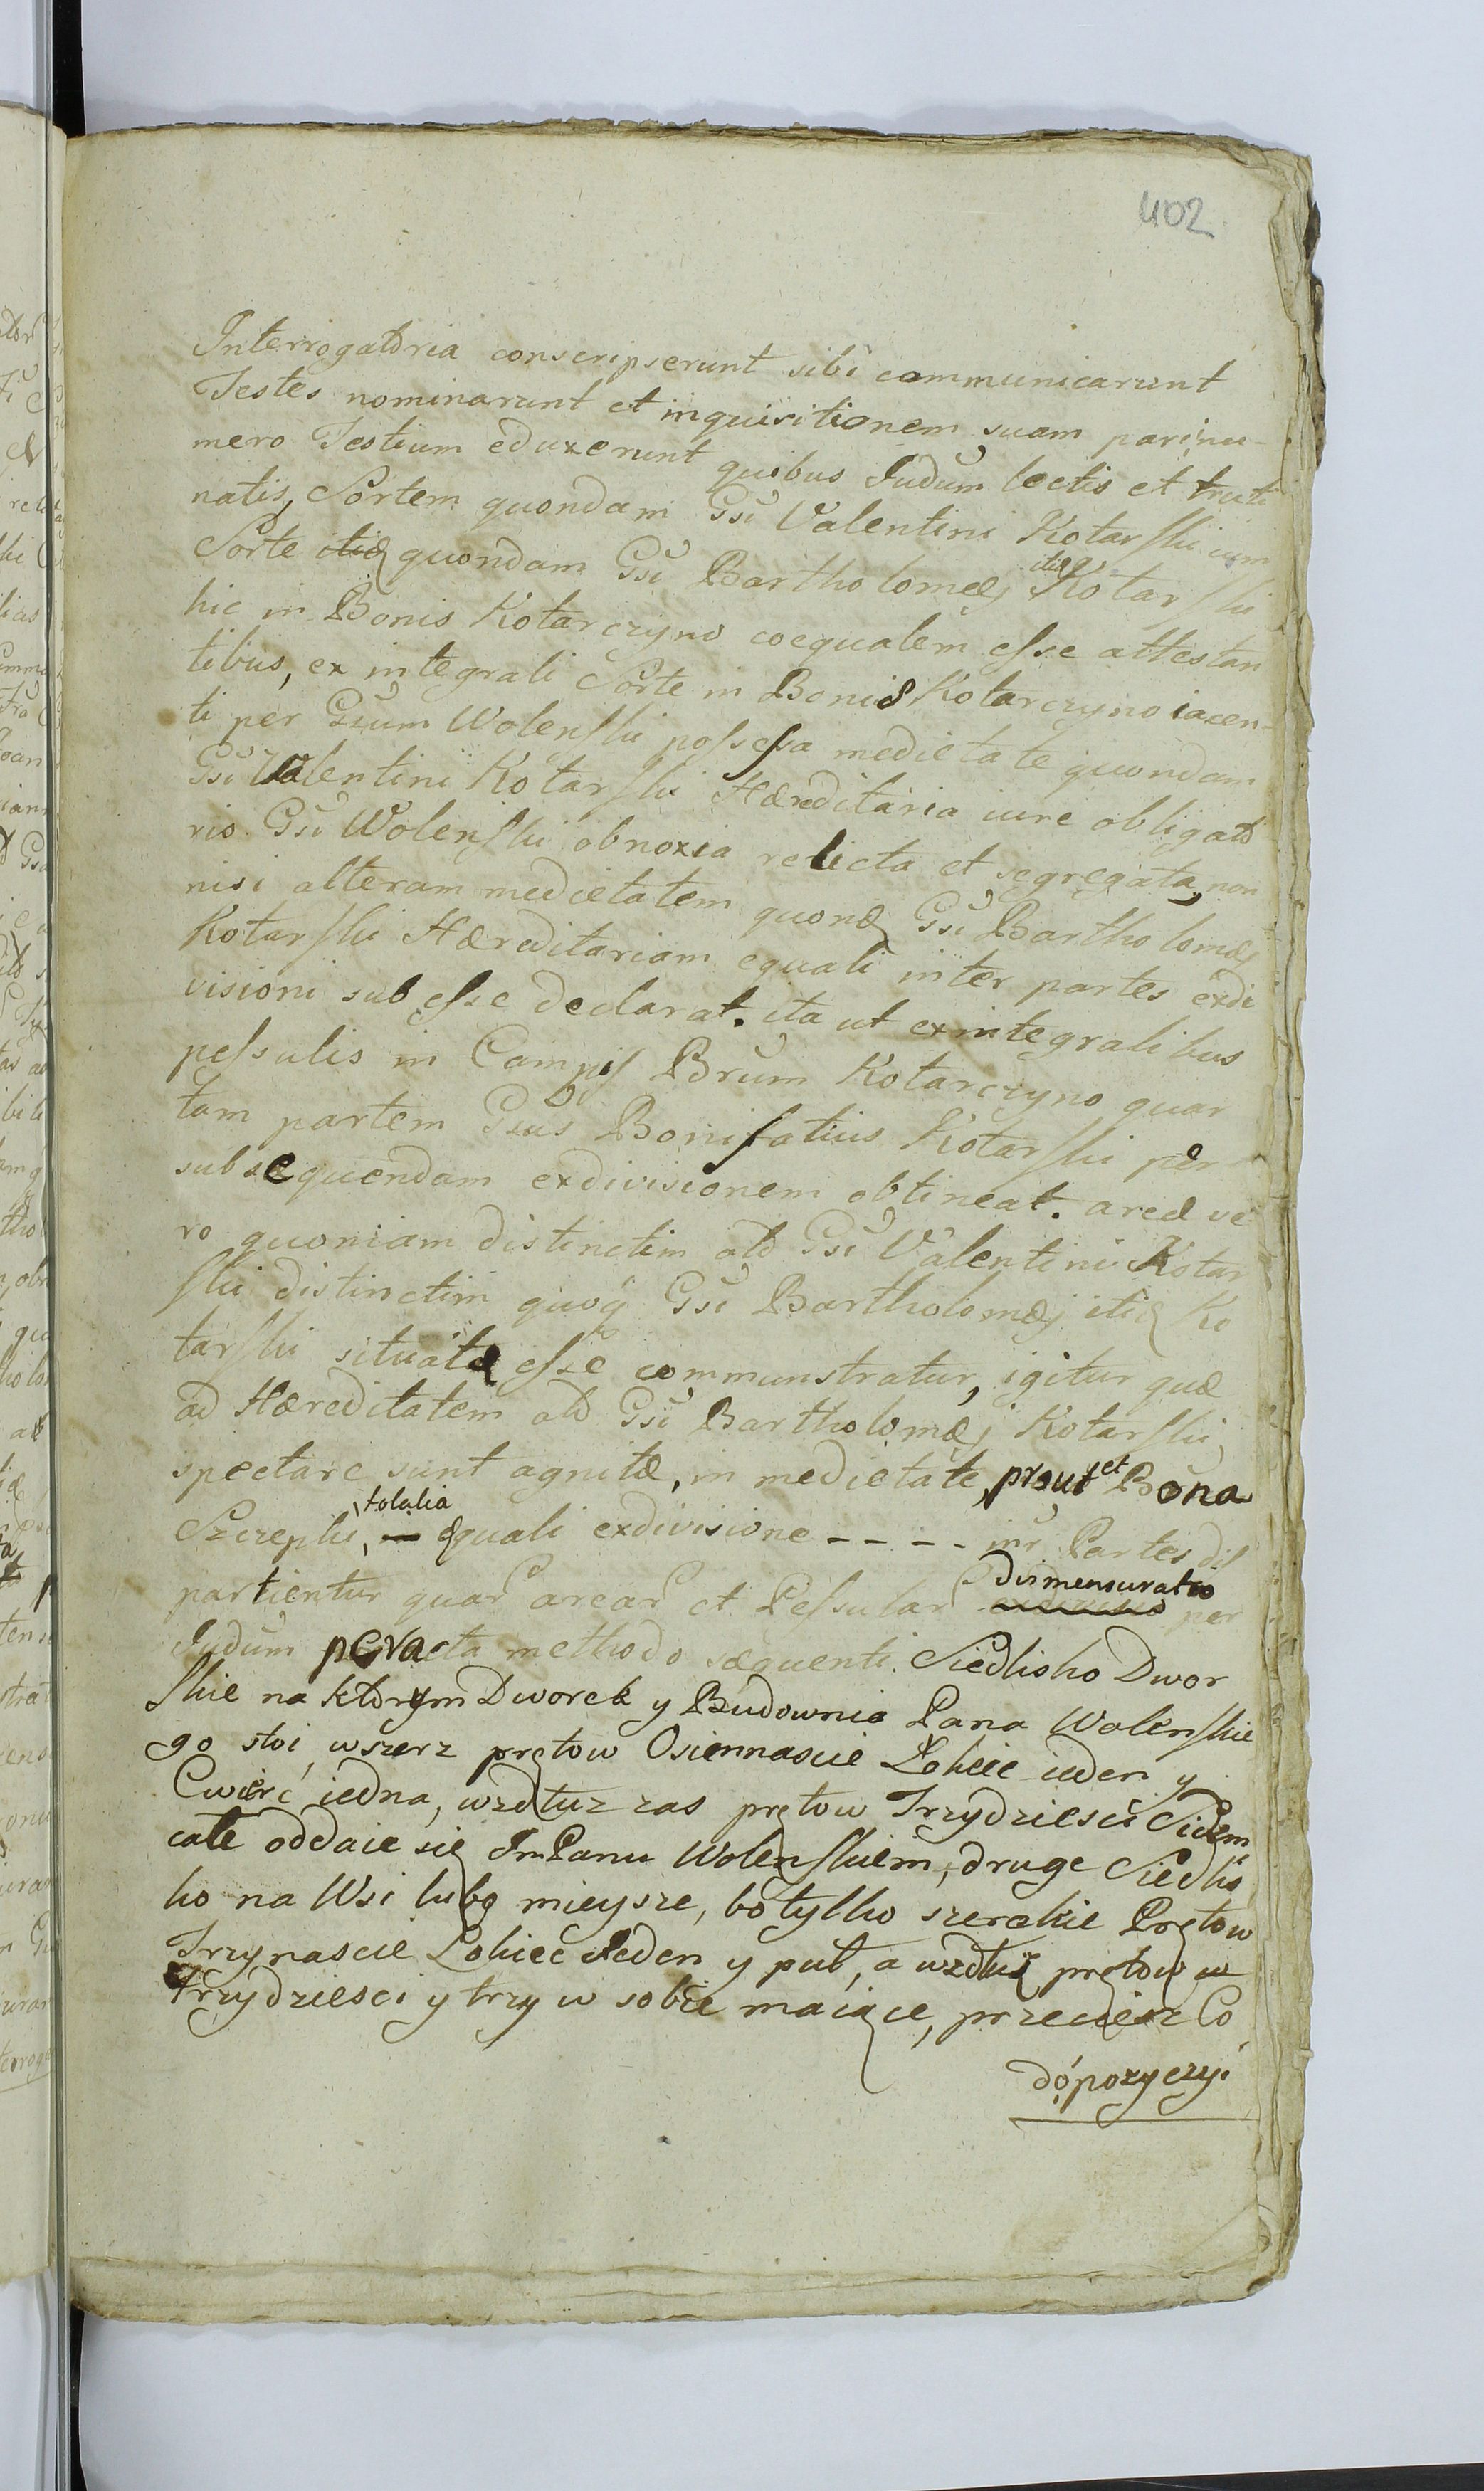 402
Interrogatoria conscripserunt sibi communicarunt
Testes nominarunt et inquisitionem suam pari nu-
mero Testium eduxerunt quibus Iudum lectis et truti
natis, Sortem quondam Gsi Valentini Kotarski cum
Sorte itid quondam Gsi Bartholomæj itid Kotarski
hic in Bonis Kotarczyno coequalem esse attestan
tibus, ex integrali Sorte in Bonis Kotarczyno iacen-
ti per Gsum Wolenski possessa medietate quondam
Gsi Valentini Kotarski Hæreditaria iure obligato
rio Gsi Wolenski obnoxia relicta et segregata, non
nisi alteram medietatem quond Gsi Bartholomæj
Kotarski Hæreditariam equali inter partes exdi
visioni subesse declarat. ita ut ex integralibus
pessulis in Campis Brum Kotarczyno quar
tam partem Gsus Bonifatius Kotarski per
subsequendam exdivisionem obtineat. areæ ve
ro quoniam distinctim olb Gsi Valentini Kotar
ski distinctim quoq Gsi Bartholomæj itid Ko
tarski situatæ esse communstratur, igitur quæ
ad Hæreditatem olb Gsi Bartholomæj Kotarski
spectare sunt agnitæ, in medietate, prout et Bona
Szczepki, totalia æquali exdivisione - - - - inr Partes dis
partientur quar arear et Pessular dismensuratio per
Iudum peracta methodo sequenti. Siedlisko Dwor
skie na ktorym Dworek y Budownia Pana Wolenskie
go stoi, wszerz prętow Osiemnascie Łokiec ieden y
Cwierć iedna, wzdłuz zas prętow Trzydziesci Siedem
całe oddaie się ImPanu Wolenskiem, drugę Siedlis
ko na Wsi lubo mieysze, bo tylko szerokie Prętow
Trzynascie Łokiec Jeden y puł, a wzdłuż prętow w
trzydziesci y trzy w sobie maiące, przeciesz Co
do pozyczyi